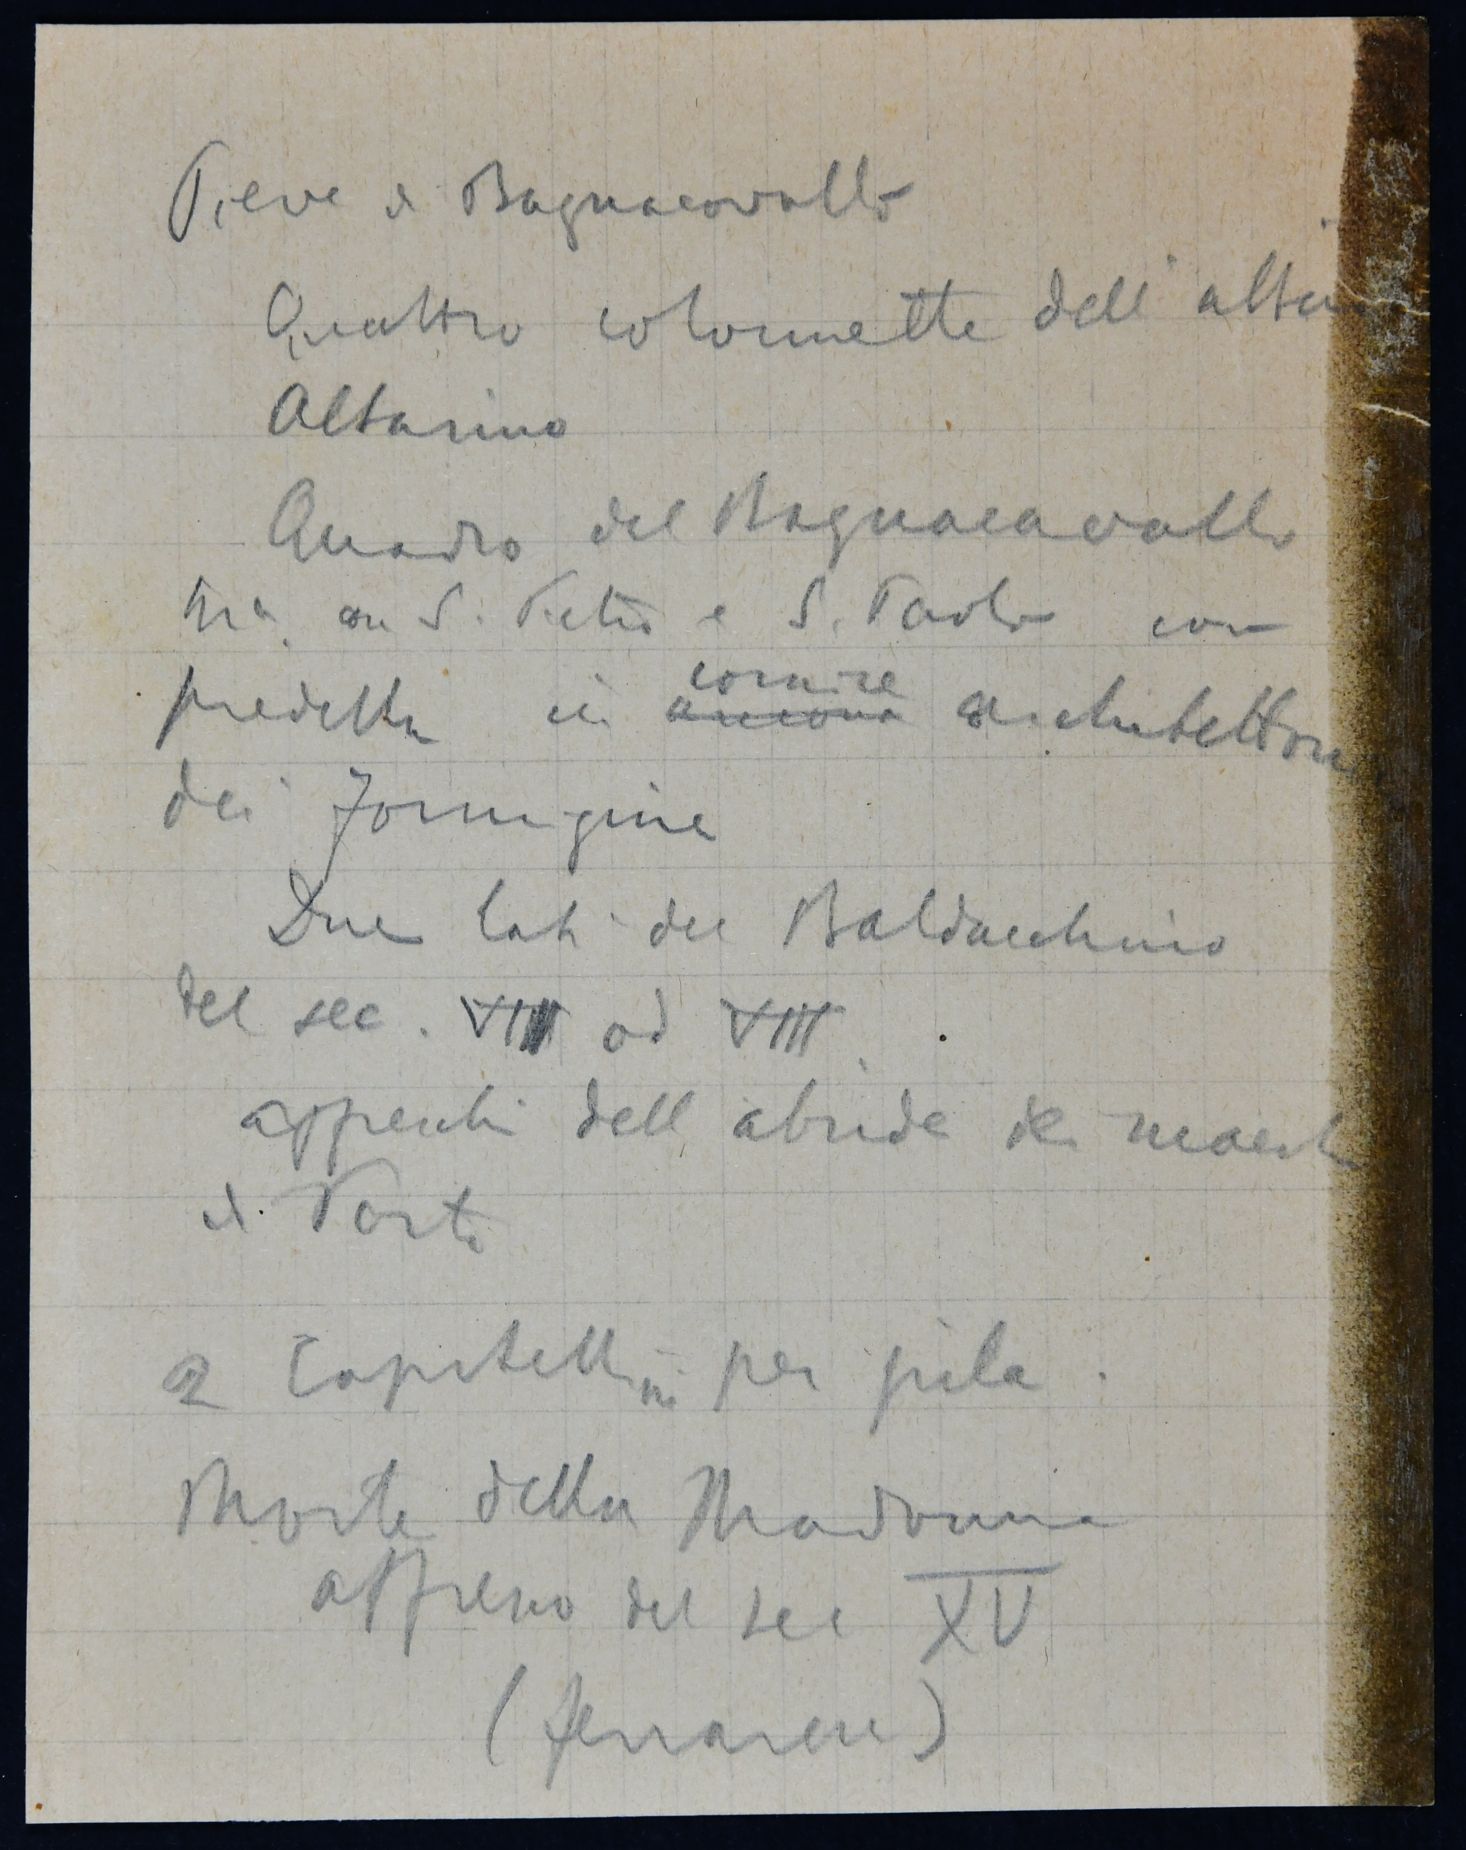 Pieve di Bagnacavallo
Quattro colonnette dell'altar
Altarino
Quadro del Bagnacavallo
tra con S. Pietro e S. Paolo con
predella in cornice architetton
dei Formigine
Due lati del Baldacchino
del sec. VII od VIII.
affreschi dell abside dei maest
di Porto
2 Capitellini per pila.
Morte della Madonna
affresco del sec XV
(ferrarese)